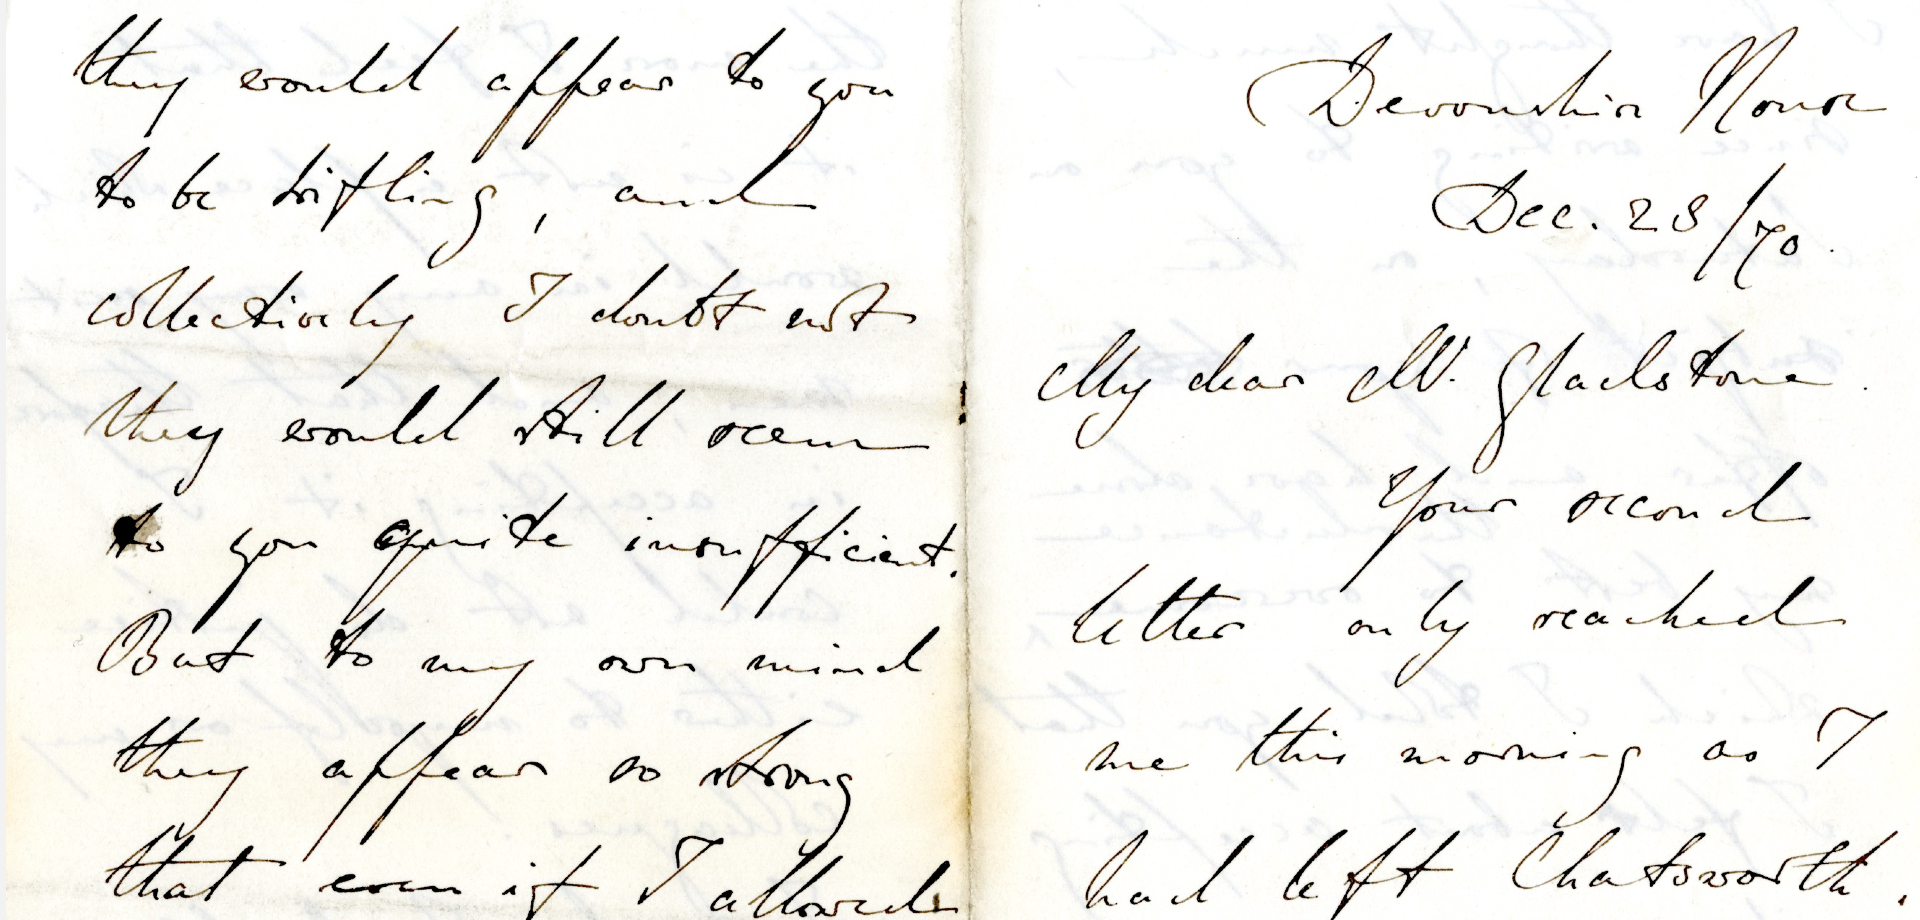 Devonshire House
Dec. 28/70.
My dear Mr. Gladstone.
Your second
letter only reached
me this morning as I
had left Chatsworth.
they would appear to you
to be trifling, and
collectively I doubt not
they would still seem
to you quite insufficient.
But to my own mind
they appear so strong
that even if I allowed